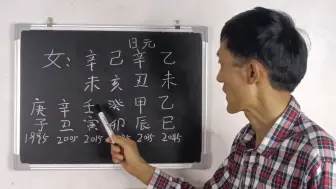 日元
女：辛己辛乙
未亥丑未
庚辛壬癸甲乙
子丑寅卯辰巳
1995 2005 2015 2035 2045